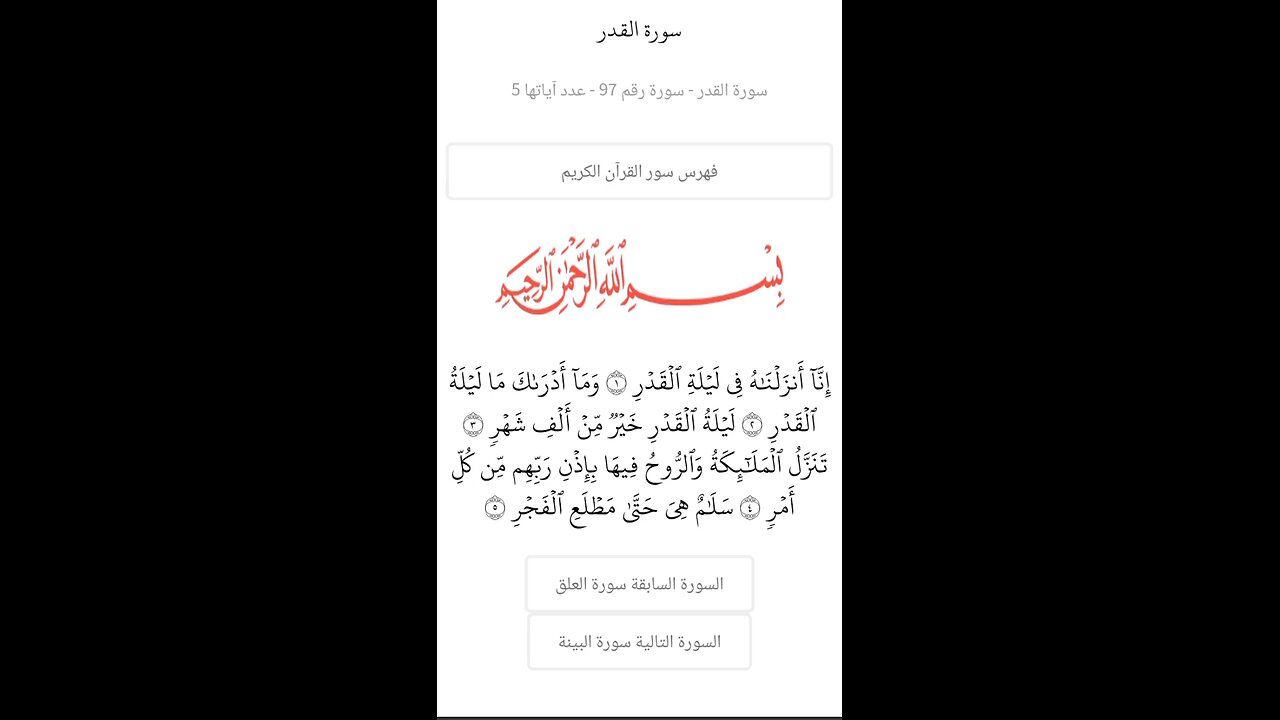 سورة القدر
سورة القدر - سورة رقم 97 - عدد آياتها 5
فهرس سور القرآن الكريم
بِسْمِ ٱللَّهِ ٱلرَّحْمَٰنِ ٱلرَّحِيمِ
إِنَّآ أَنزَلۡنَٰهُ فِي لَيۡلَةِ ٱلۡقَدۡرِ ١ وَمَآ أَدۡرَىٰكَ مَا لَيۡلَةُ
ٱلۡقَدۡرِ ٢ لَيۡلَةُ ٱلۡقَدۡرِ خَيۡرٞ مِّنۡ أَلۡفِ شَهۡرٖ ٣
تَنَزَّلُ ٱلۡمَلَٰٓئِكَةُ وَٱلرُّوحُ فِيهَا بِإِذۡنِ رَبِّهِم مِّن كُلِّ
أَمۡرٖ ٤ سَلَٰمٌ هِيَ حَتَّىٰ مَطۡلَعِ ٱلۡفَجۡرِ ٥
السورة السابقة سورة العلق
السورة التالية سورة البينة